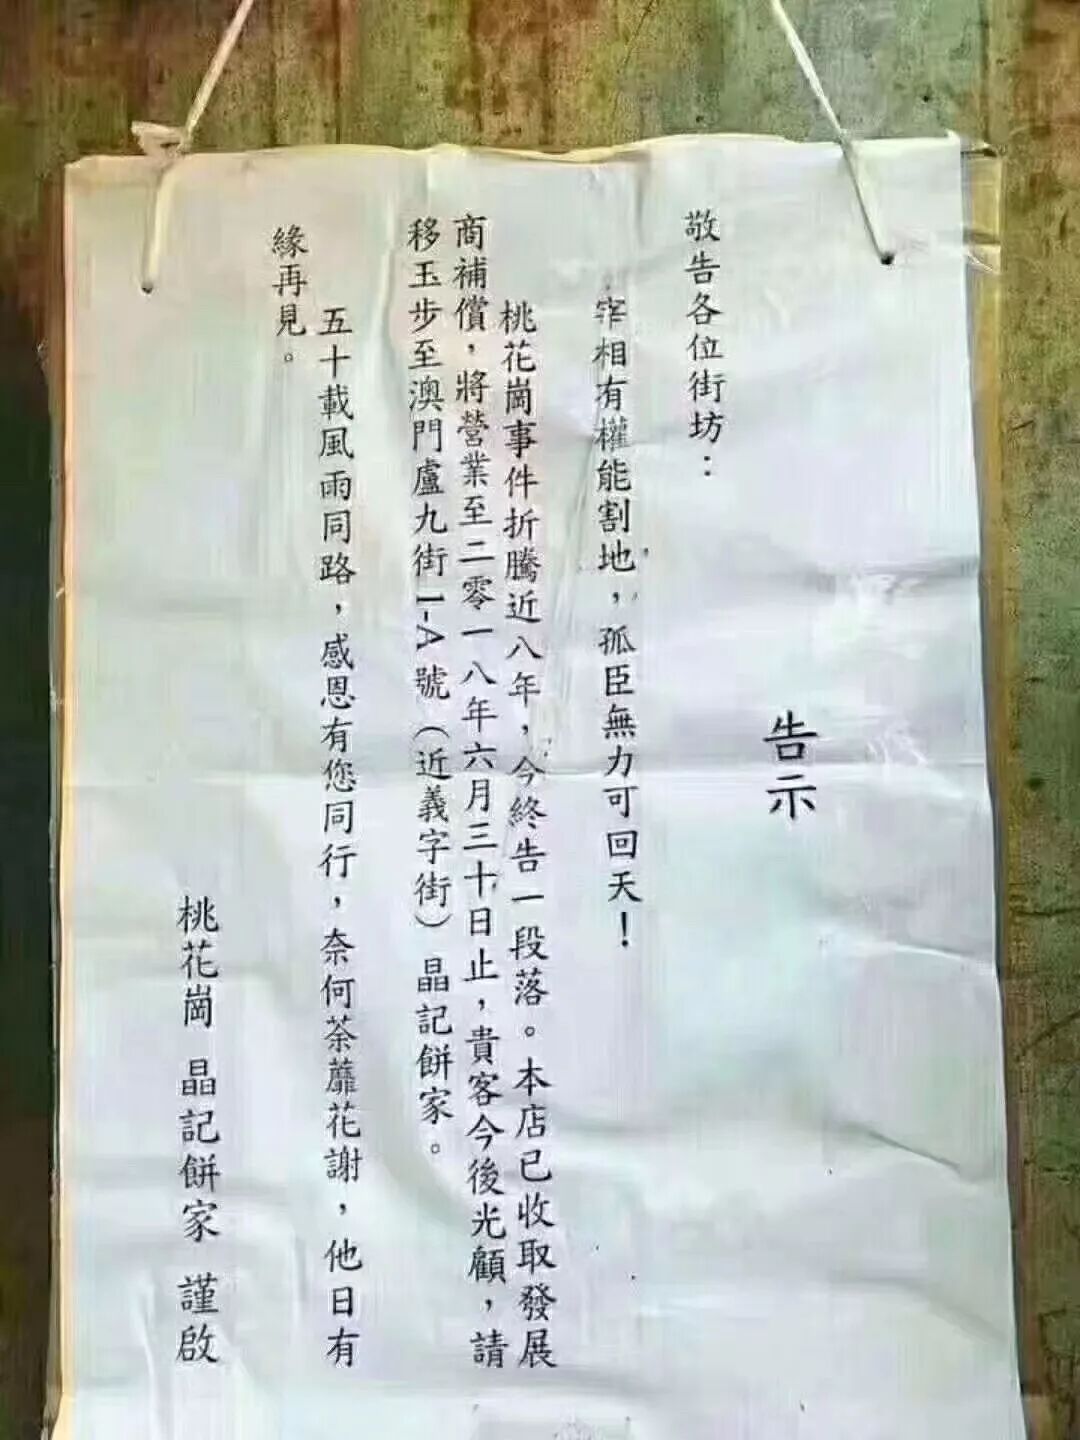 告示
敬告各位街坊：
宰相有權能割地，孤臣無力可回天！
桃花崗事件折騰近八年，今終告一段落。本店已收取發展
商補償，將營業至二零一八年六月三十日止，貴客今後光顧，請
移玉步至澳門盧九街1-A號（近義字街）晶記餅家。
五十載風雨同路，感恩有您同行，奈何荼蘼花謝，他日有
緣再見。
桃花崗 晶記餅家 謹啟